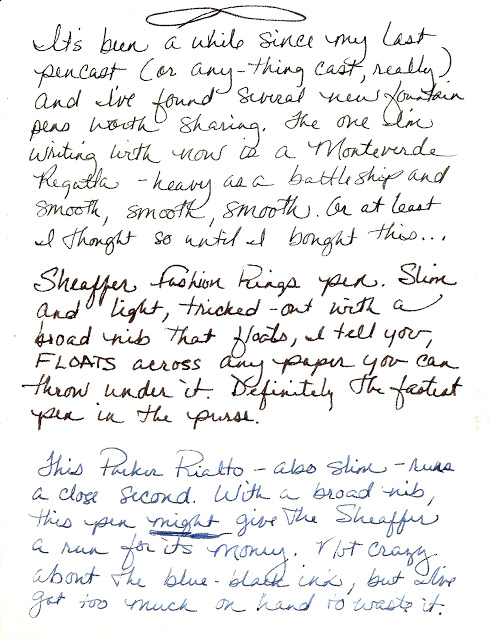 It's been a while since my last
pencast (or any-thing cast, really)
and I've found several new fountain
pens worth sharing. The one I'm
writing with now is a Monteverde
Regatta - heavy as a battleship and
smooth, smooth, smooth. Or at least
I thought so until I bought this...
Sheaffer Fashion Rings pen. Slim
and light, tricked-out with a
broad nib that floats, I tell you,
FLOATS across any paper you can
throw under it. Definitely the fastest
pen in the purse.
This Parker Rialto - also slim - runs
a close second. With a broad nib,
this pen might give the Sheaffer
a run for its money. Not crazy
about the blue-black ink, but I've
got too much on hand to waste it.